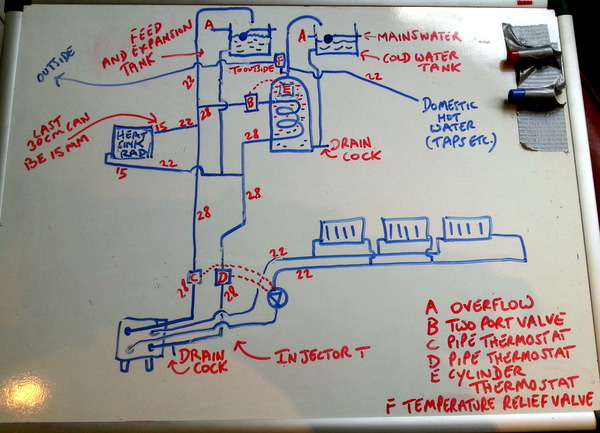 FEED
AND EXPANSION
TANK
A
A
MAINS WATER
COLD WATER
TANK
OUTSIDE
TO OUTSIDE
F
22
22
E
B
28
28
DOMESTIC
HOT
WATER
(TAPS ETC.)
LAST
30CM CAN
BE 15MM
15
22
HEAT
SINK
RAD
22
15
DRAIN
COCK
28
28
22
22
C
D
28
28
DRAIN
COCK
INJECTOR T
A OVERFLOW
B TWO PORT VALVE
C PIPE THERMOSTAT
D PIPE THERMOSTAT
E CYLINDER
THERMOSTAT
F TEMPERATURE RELIEF VALVE